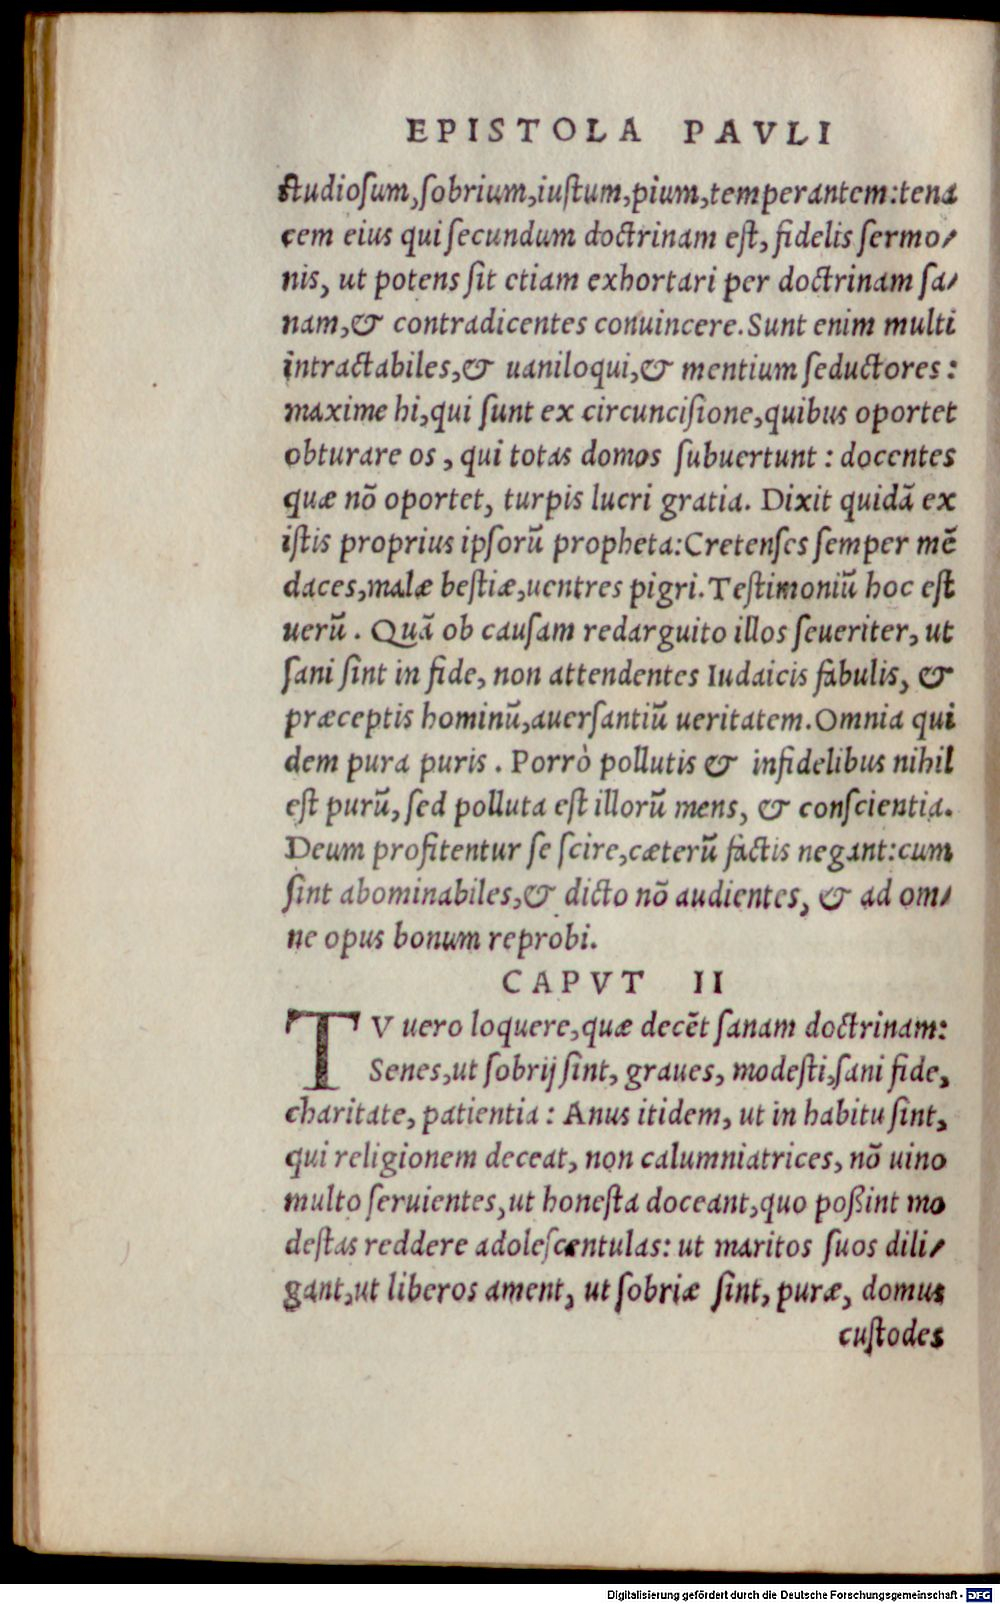 EPISTOLA PAVLI
ſtudioſum,ſobrium,iuſtum,pium,temperantem:tena
cem eius qui ſecundum doctrinam eſt, fidelis ſermo/
nis, ut potens ſit etiam exhortari per doctrinam ſa/
nam,& contradicentes conuincere.Sunt enim multi
intractabiles,& uaniloqui,& mentium ſeductores :
maxime hi,qui ſunt ex circunciſione,quibus oportet
obturare os , qui totas domos ſubuertunt : docentes
quæ nõ oportet, turpis lucri gratia. Dixit quidã ex
iſtis proprius ipſorũ propheta:Cretenſes ſemper mẽ
daces,malæ beſtiæ,uentres pigri.Teſtimoniũ hoc eſt
uerũ . Quã ob cauſam redarguito illos ſeueriter, ut
ſani ſint in fide, non attendentes Iudaicis fabulis, &
præceptis hominũ,auerſantiũ ueritatem.Omnia qui
dem pura puris . Porrò pollutis & infidelibus nihil
eſt purũ, ſed polluta eſt illorũ mens, & conſcientia.
Deum profitentur ſe ſcire,cæterũ factis negant:cum
ſint abominabiles,& dicto nõ audientes, & ad om/
ne opus bonum reprobi.
CAPVT II
TV uero loquere,quæ decẽt ſanam doctrinam:
Senes,ut ſobrij ſint, graues, modeſti,ſani fide,
charitate, patientia : Anus itidem, ut in habitu ſint,
qui religionem deceat, non calumniatrices, nõ uino
multo ſeruientes,ut honeſta doceant,quo poßint mo
deſtas reddere adoleſcentulas: ut maritos ſuos dili/
gant,ut liberos ament, ut ſobriæ ſint, puræ, domus
cuſtodes
Digitalisierung gefördert durch die Deutsche Forschungsgemeinschaft - DFG